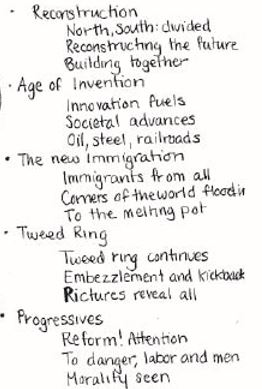 • Reconstruction
North, South: divided
Reconstructing the future
Building together
• Age of Invention
Innovation fuels
Societal advances
Oil, steel, railroads
• The new Immigration
Immigrants from all
Corners of the world flood in
To the melting pot
• Tweed Ring
Tweed ring continues
Embezzlement and kickback
Pictures reveal all
• Progressives
Reform! Attention
To danger, labor and men
Morality seen